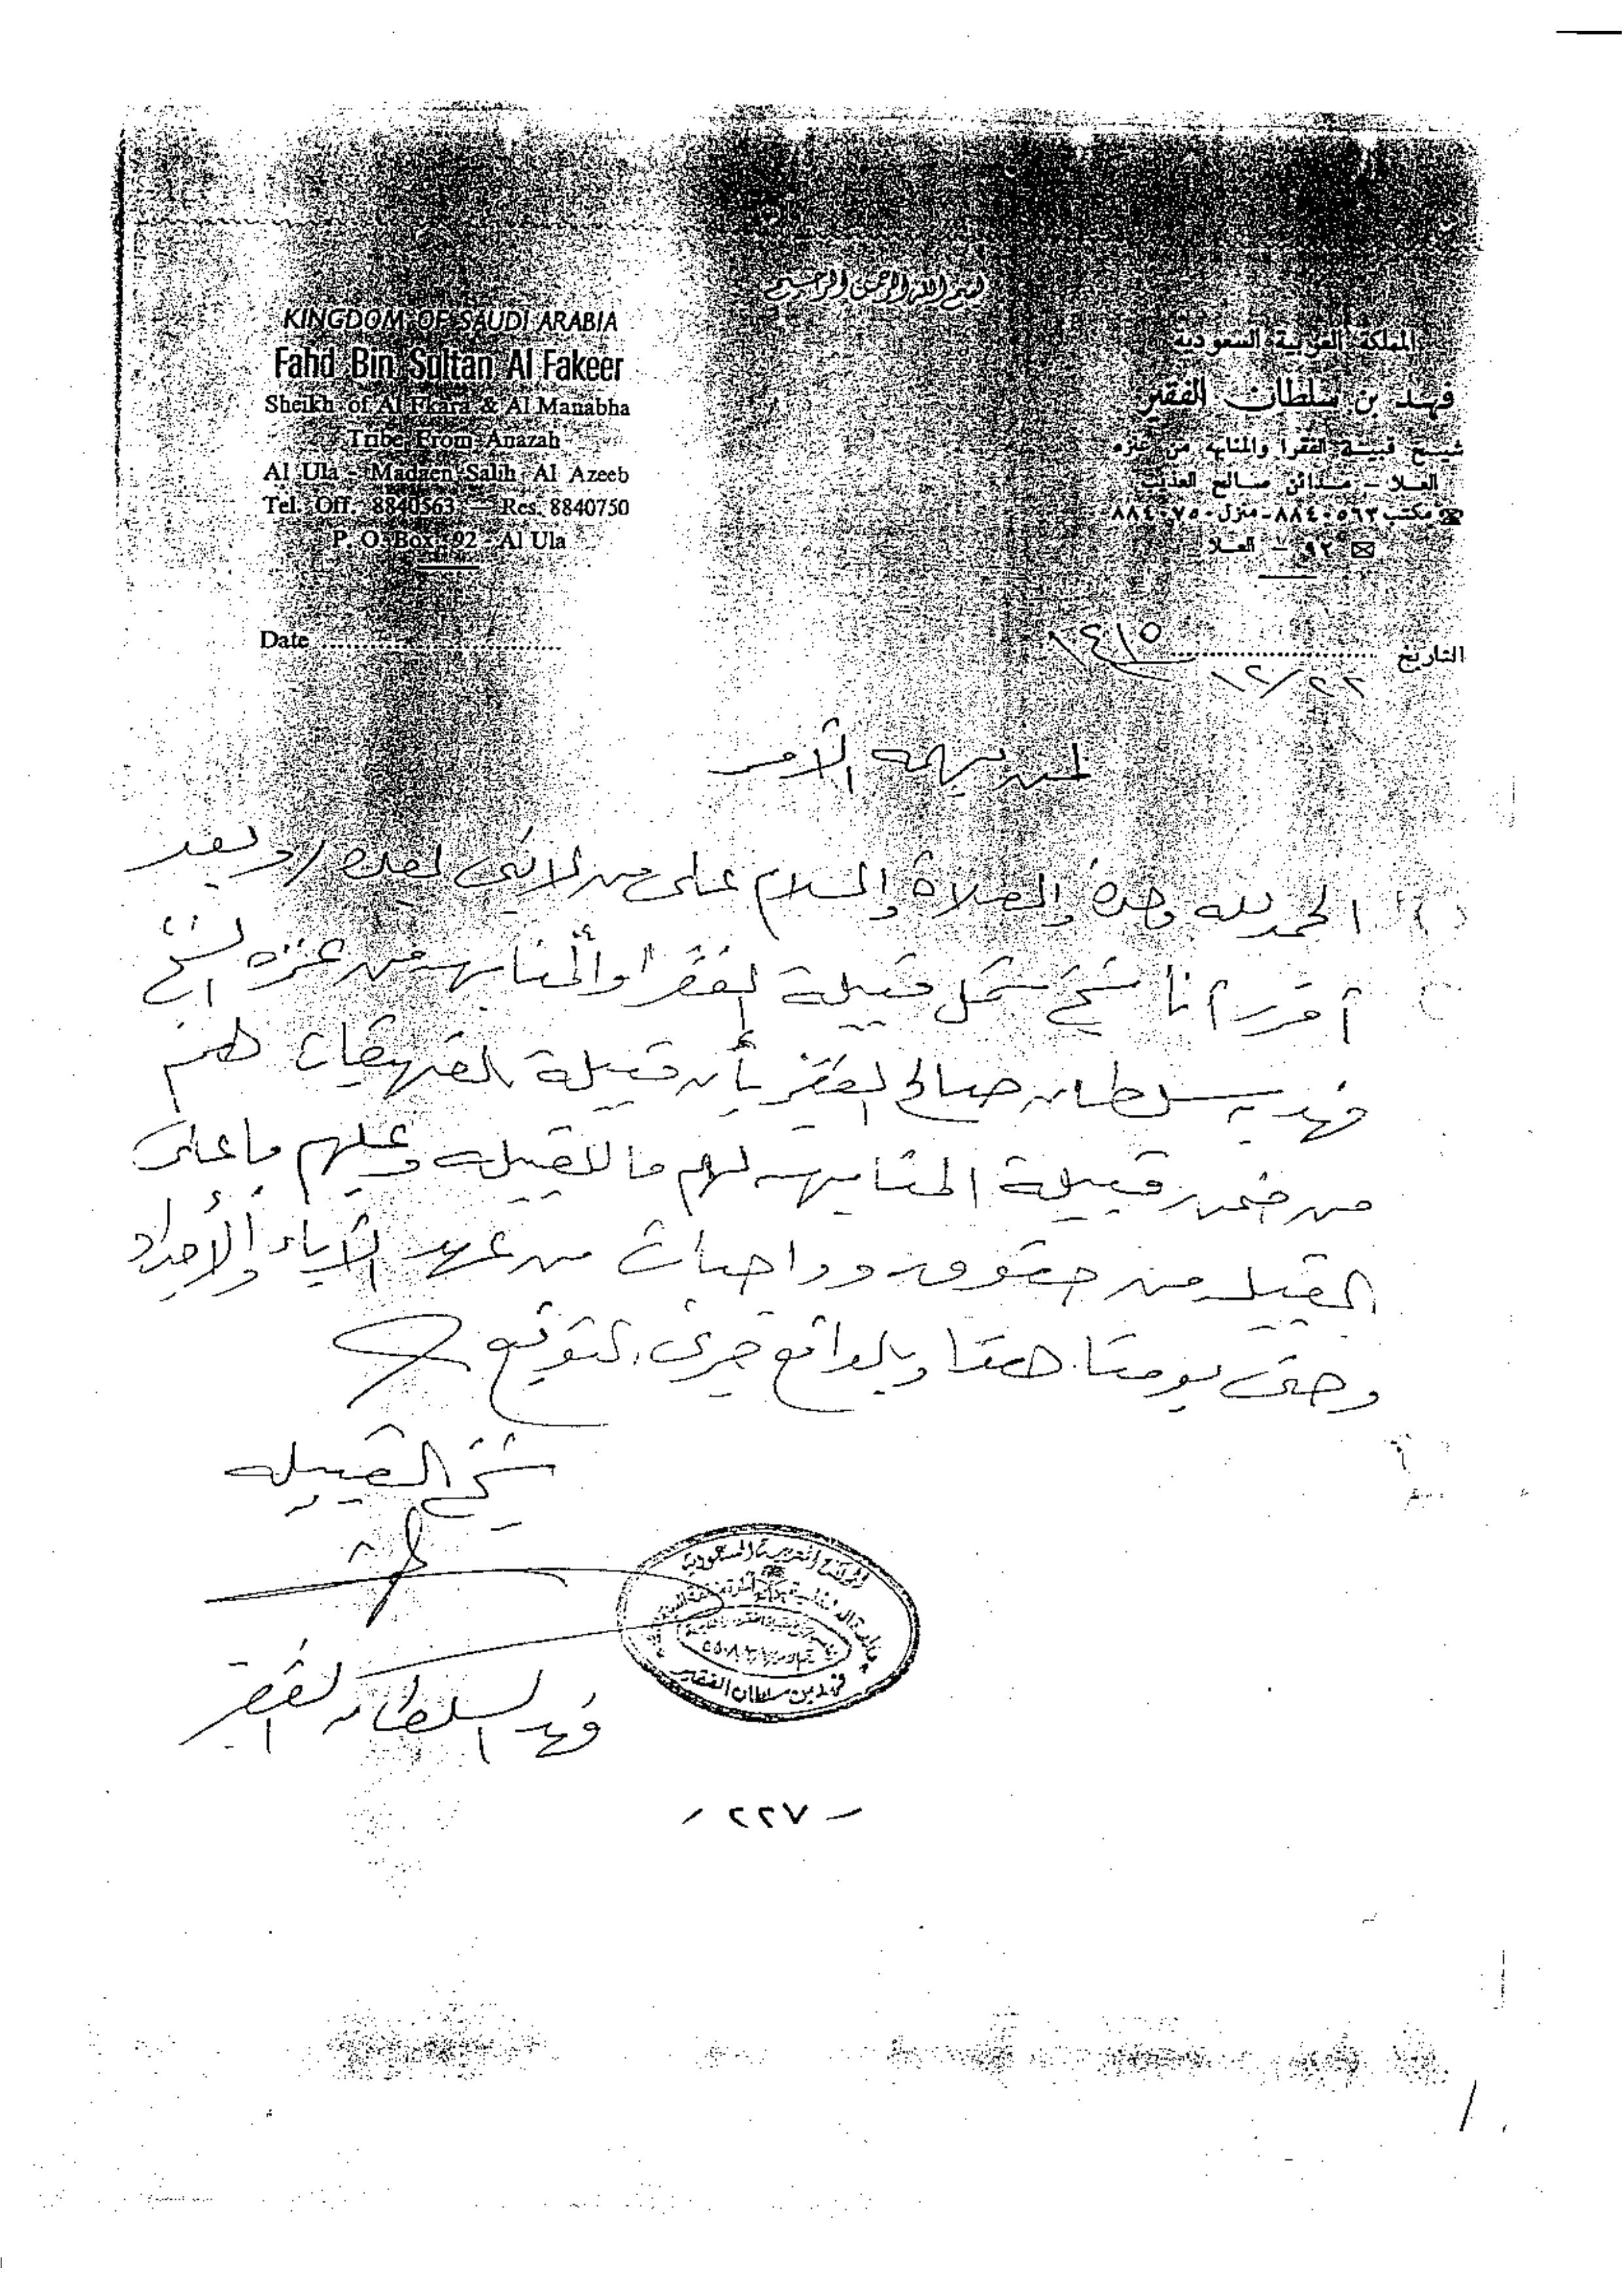 بسم الله الرحمن الرحيم
KINGDOM OF SAUDI ARABIA
Fahd Bin Sultan Al Fakeer
Sheikh of Al Fkara & Al Manabha
Tribe From Anazah
Al Ula - Madaen Salih Al Azeeb
Tel. Off. 8840563 - Res. 8840750
P. O. Box 92 - Al Ula
Date
المملكة العربية السعودية
فهد بن سلطان الفقير
شيخ قبيلة الفقرا والمنابهه من عنزه
العلا - مدائن صالح العذيب
مكتب ٨٨٤٠٥٦٣ - منزل ٨٨٤٠٧٥٠
٩٢ - العلا
التاريخ ٢٢/١٢/١٤١٥
لمن يهمه الأمر
الحمد لله وحده والصلاة والسلام على من لا نبي بعده / وبعد
أقرر أنا شيخ شمل قبيلة الفقرا والمنابهه من عنزه الشيخ
فهد بن سلطان صالح الفقير بأن قبيلة هم
من ضمن قبيلة المنابهه لهم ما للقبيله وعليهم ما على
القبيله من حقوق وواجبات من عهد الأباء والأجداد
وحتى يومنا هذا وبالواقع جرى التوقيع
شيخ القبيله
فهد السلطان الفقير
المملكة العربية السعودية
فهد بن سلطان الفقير
- ٢٢٧ -